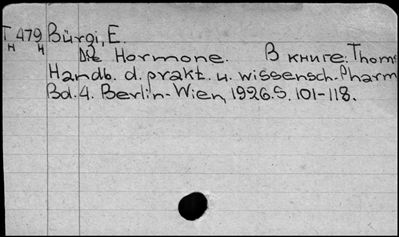 T 479 Bürgi, E.
н н Die Hormone. В книге: Thoms
Handb. d. prakt. u. wissensch. Pharm
Bd. 4. Berlin-Wien, 1926. S. 101-118.